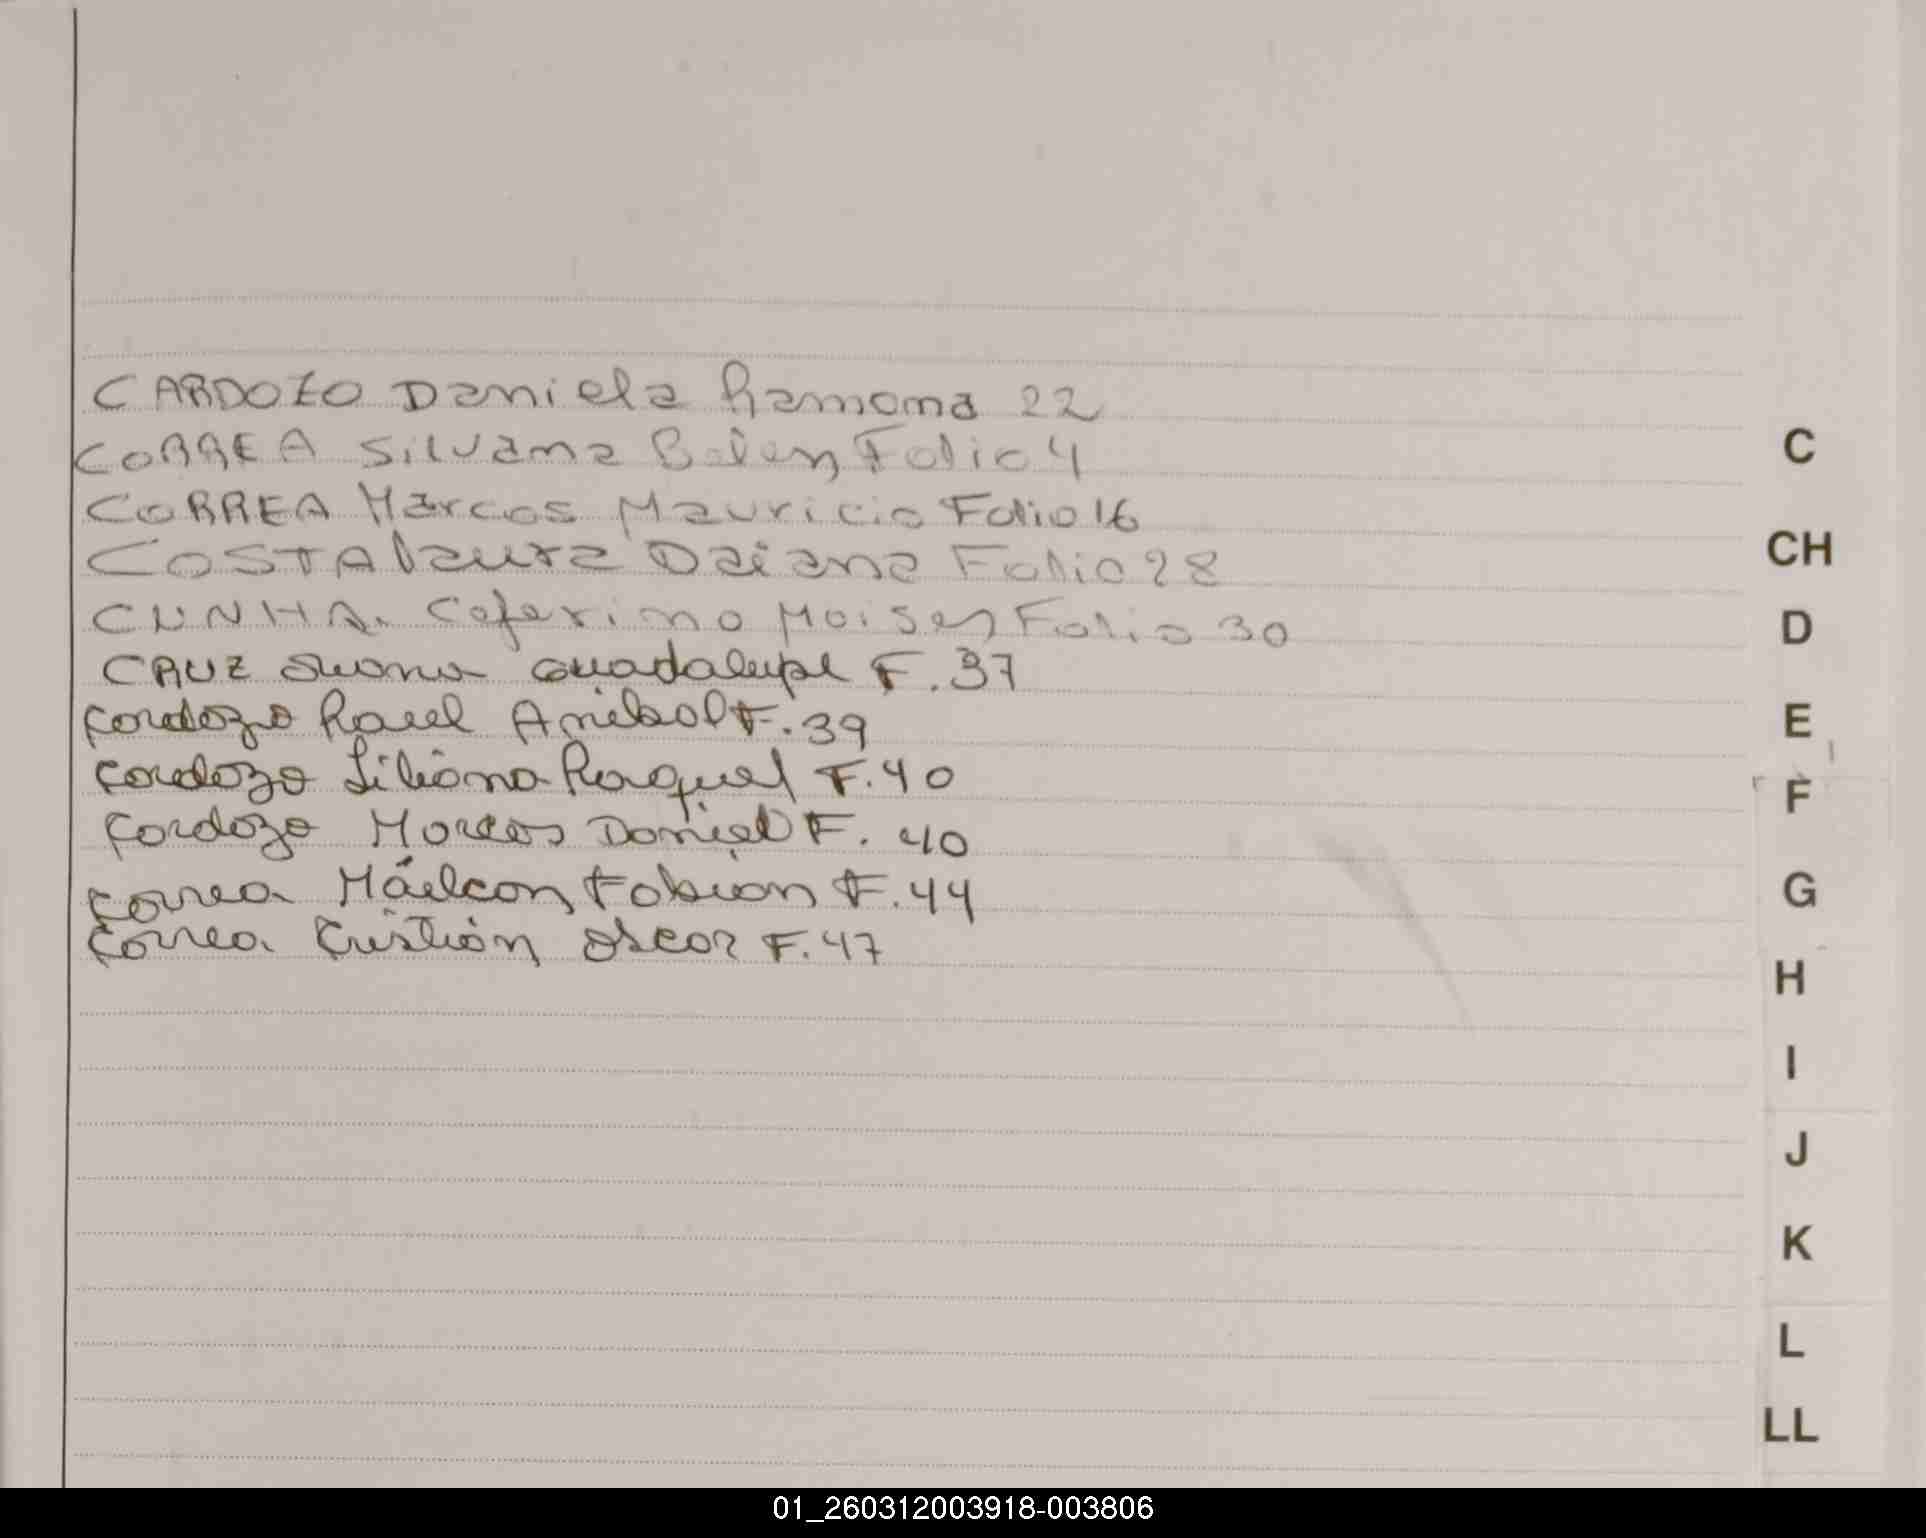 CARDOZO Daniela Ramona 22
CORREA Silvana Belen Folio 4
CORREA Marcos Mauricio Folio 16
COSTA Laura Daiana Folio 28
CUNHA. Ceferino Moises Folio 30
CRUZ Guadalupe F. 37
Cardozo Raul Anibal F. 39
Cardozo Liliana Raquel F. 40
Cardozo Marcos Daniel F. 40
Correa Máilcon Fabian F. 44
Correa Cristián Oscar F. 47
C
CH
D
E
F
G
H
I
J
K
L
LL
01_260312003918-003806